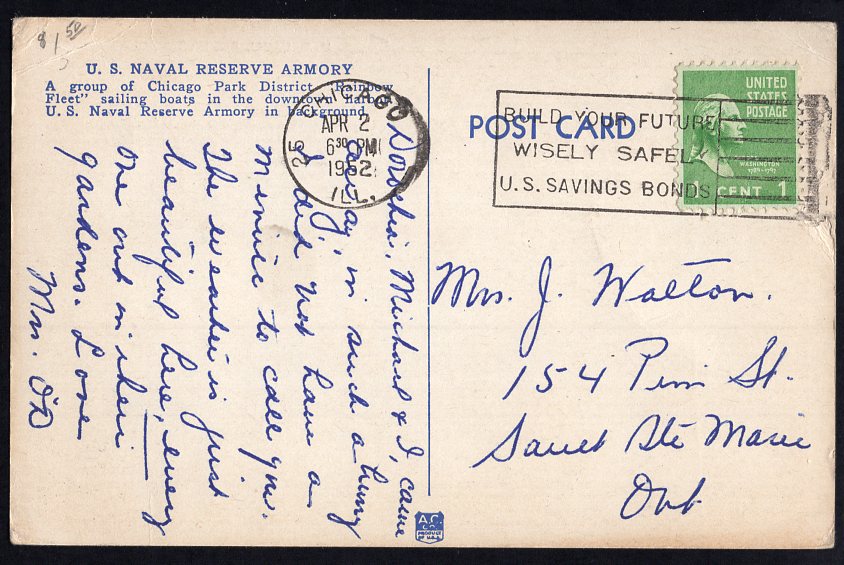 $1.50
U. S. NAVAL RESERVE ARMORY
A group of Chicago Park District "Rainbow
Fleet" sailing boats in the downtown harbor.
U. S. Naval Reserve Armory in background.
CHICAGO
APR 2
6 30 PM
1952
ILL.
25
BUILD YOUR FUTURE
WISELY SAFELY
U.S. SAVINGS BONDS
UNITED
STATES
POSTAGE
WASHINGTON
1789-1797
1 CENT 1
POST CARD
Michael & I, came
away, in such a hurry
I did not have a
minute to call you.
The weather is just
beautiful here, every
one out in their
gardens. Love
Mrs. OD
Mrs. J. Walton.
154 Pim St.
Sault Ste Marie
Ont
A.C.
CO.
PRODUCT
OF U.S.A.